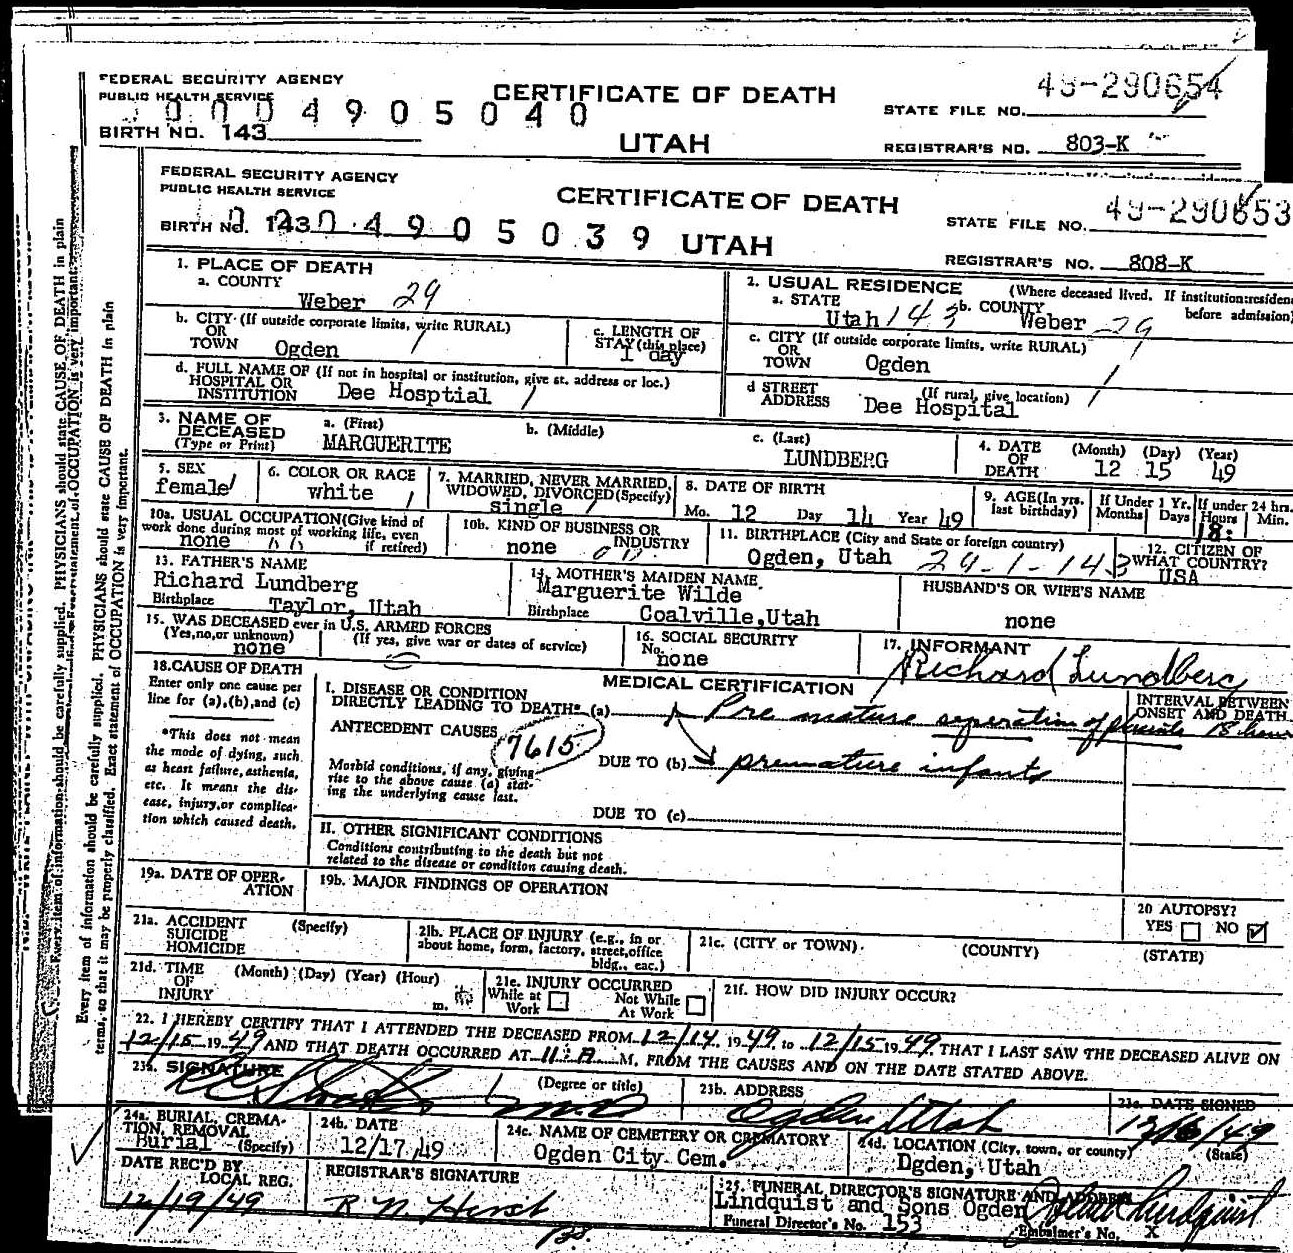 FEDERAL SECURITY AGENCY
PUBLIC HEALTH SERVICE
CERTIFICATE OF DEATH
49-290654
STATE FILE NO.
4905040
BIRTH NO. 143
UTAH
REGISTRAR'S NO. 803-K
FEDERAL SECURITY AGENCY
PUBLIC HEALTH SERVICE
CERTIFICATE OF DEATH
STATE FILE NO. 49-290653
BIRTH No. 143 4905039 UTAH
REGISTRAR'S NO. 808-K
1. PLACE OF DEATH
a. COUNTY
Weber 29
2. USUAL RESIDENCE (Where deceased lived. If institution: residence before admission)
a. STATE Utah 143 b. COUNTY Weber 29
b. CITY (If outside corporate limits, write RURAL)
OR
TOWN Ogden 1
c. LENGTH OF
STAY (this place)
1 day
c. CITY (If outside corporate limits, write RURAL)
OR
TOWN Ogden 1
d. FULL NAME OF (If not in hospital or institution, give st. address or loc.)
HOSPITAL OR
INSTITUTION Dee Hosptial 1
d STREET (If rural, give location)
ADDRESS Dee Hospital
3. NAME OF
DECEASED
(Type or Print)
a. (First)
MARGUERITE
b. (Middle)
c. (Last)
LUNDBERG
4. DATE
OF
DEATH
(Month) (Day) (Year)
12 15 49
5. SEX
female
6. COLOR OR RACE
white
7. MARRIED, NEVER MARRIED,
WIDOWED, DIVORCED (Specify)
single
8. DATE OF BIRTH
Mo. 12 Day 14 Year 49
9. AGE (In yrs.
last birthday)
If Under 1 Yr.
Months Days
If under 24 hrs.
Hours Min.
18:
10a. USUAL OCCUPATION (Give kind of
work done during most of working life, even
if retired)
none
10b. KIND OF BUSINESS OR
INDUSTRY
none
11. BIRTHPLACE (City and State or foreign country)
Ogden, Utah 29-1-143
12. CITIZEN OF
WHAT COUNTRY?
USA
13. FATHER'S NAME
Richard Lundberg
Birthplace Taylor, Utah
14. MOTHER'S MAIDEN NAME
Marguerite Wilde
Birthplace Coalville,Utah
HUSBAND'S OR WIFE'S NAME
none
15. WAS DECEASED ever in U.S. ARMED FORCES
(Yes,no,or unknown) (If yes, give war or dates of service)
none
16. SOCIAL SECURITY
No.
none
17. INFORMANT
Richard Lundberg
18.CAUSE OF DEATH
Enter only one cause per
line for (a),(b),and (c)
*This does not mean
the mode of dying, such
as heart failure, asthenia,
etc. It means the dis-
ease, injury,or complica-
tion which caused death.
MEDICAL CERTIFICATION
INTERVAL BETWEEN
ONSET AND DEATH
I. DISEASE OR CONDITION
DIRECTLY LEADING TO DEATH* (a) Pre mature seperation of plasenta 18 hours
ANTECEDENT CAUSES 7615
Morbid conditions, if any, giving
rise to the above cause (a) stat-
ing the underlying cause last.
DUE TO (b) premature infants
DUE TO (c)
II. OTHER SIGNIFICANT CONDITIONS
Conditions contributing to the death but not
related to the disease or condition causing death.
19a. DATE OF OPER-
ATION
19b. MAJOR FINDINGS OF OPERATION
20 AUTOPSY?
YES NO
21a. ACCIDENT (Specify)
SUICIDE
HOMICIDE
21b. PLACE OF INJURY (e.g., in or
about home, form, factory, street,office
bldg., eac.)
21c. (CITY or TOWN). (COUNTY) (STATE)
21d. TIME (Month) (Day) (Year) (Hour)
OF
INJURY m.
21e. INJURY OCCURRED
While at Work Not While At Work
21f. HOW DID INJURY OCCUR?
22. I HEREBY CERTIFY THAT I ATTENDED THE DECEASED FROM 12/14, 1949, to 12/15 1949, THAT I LAST SAW THE DECEASED ALIVE ON
12/15 1949 AND THAT DEATH OCCURRED AT 11: A M. FROM THE CAUSES AND ON THE DATE STATED ABOVE.
23a. SIGNATURE (Degree or title)
M.D.
23b. ADDRESS
Ogden Utah
23c. DATE SIGNED
12/16/49
24a. BURIAL, CREMA-
TION, REMOVAL
Burial (Specify)
24b. DATE
12/17/49
24c. NAME OF CEMETERY OR CREMATORY
Ogden City Cem.
24d. LOCATION (City, town, or county) (State)
Ogden, Utah
DATE REC'D BY
LOCAL REG.
12/19/49
REGISTRAR'S SIGNATURE
25. FUNERAL DIRECTOR'S SIGNATURE AND ADDRESS
Lindquist and Sons Ogden
Funeral Director's No. 153
Embalmer's No. X
Every item of information should be carefully supplied. PHYSICIANS should state CAUSE OF DEATH in plain
terms, so that it may be properly classified. Exact statement of OCCUPATION is very important.